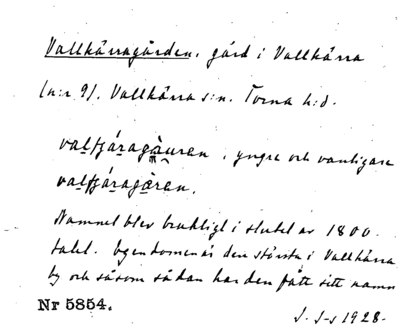 Vallkärragården, gård i Vallkärra
(n:r 9). Vallkärra s:n. Torna h:d.
valfjáragàuren, yngre och vanligare
valfjáragàren.
Namnet blev brukligt i slutet av 1800-
talet. Egendomen är den största i Vallkärra
by och såsom sådan har den fått sitt namn
Nr 5854.
J. J-s 1928.